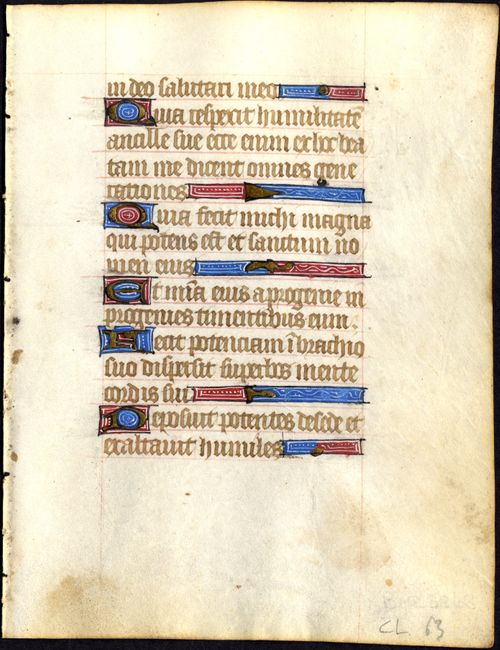 in deo salutari meo
Quia respexit humilitatē
ancille sue ecce enim ex hoc bea
tam me dicent omnes gene
rationes
Quia fecit michi magna
qui potens est et sanctum no
men eius
Et mīa eius a progenie in
progenies timentibus eum.
Fecit potenciam ī brachio
suo dispersit superbos mente
cordis sui
Deposuit potentes de sede et
exaltavit humiles
CL 63